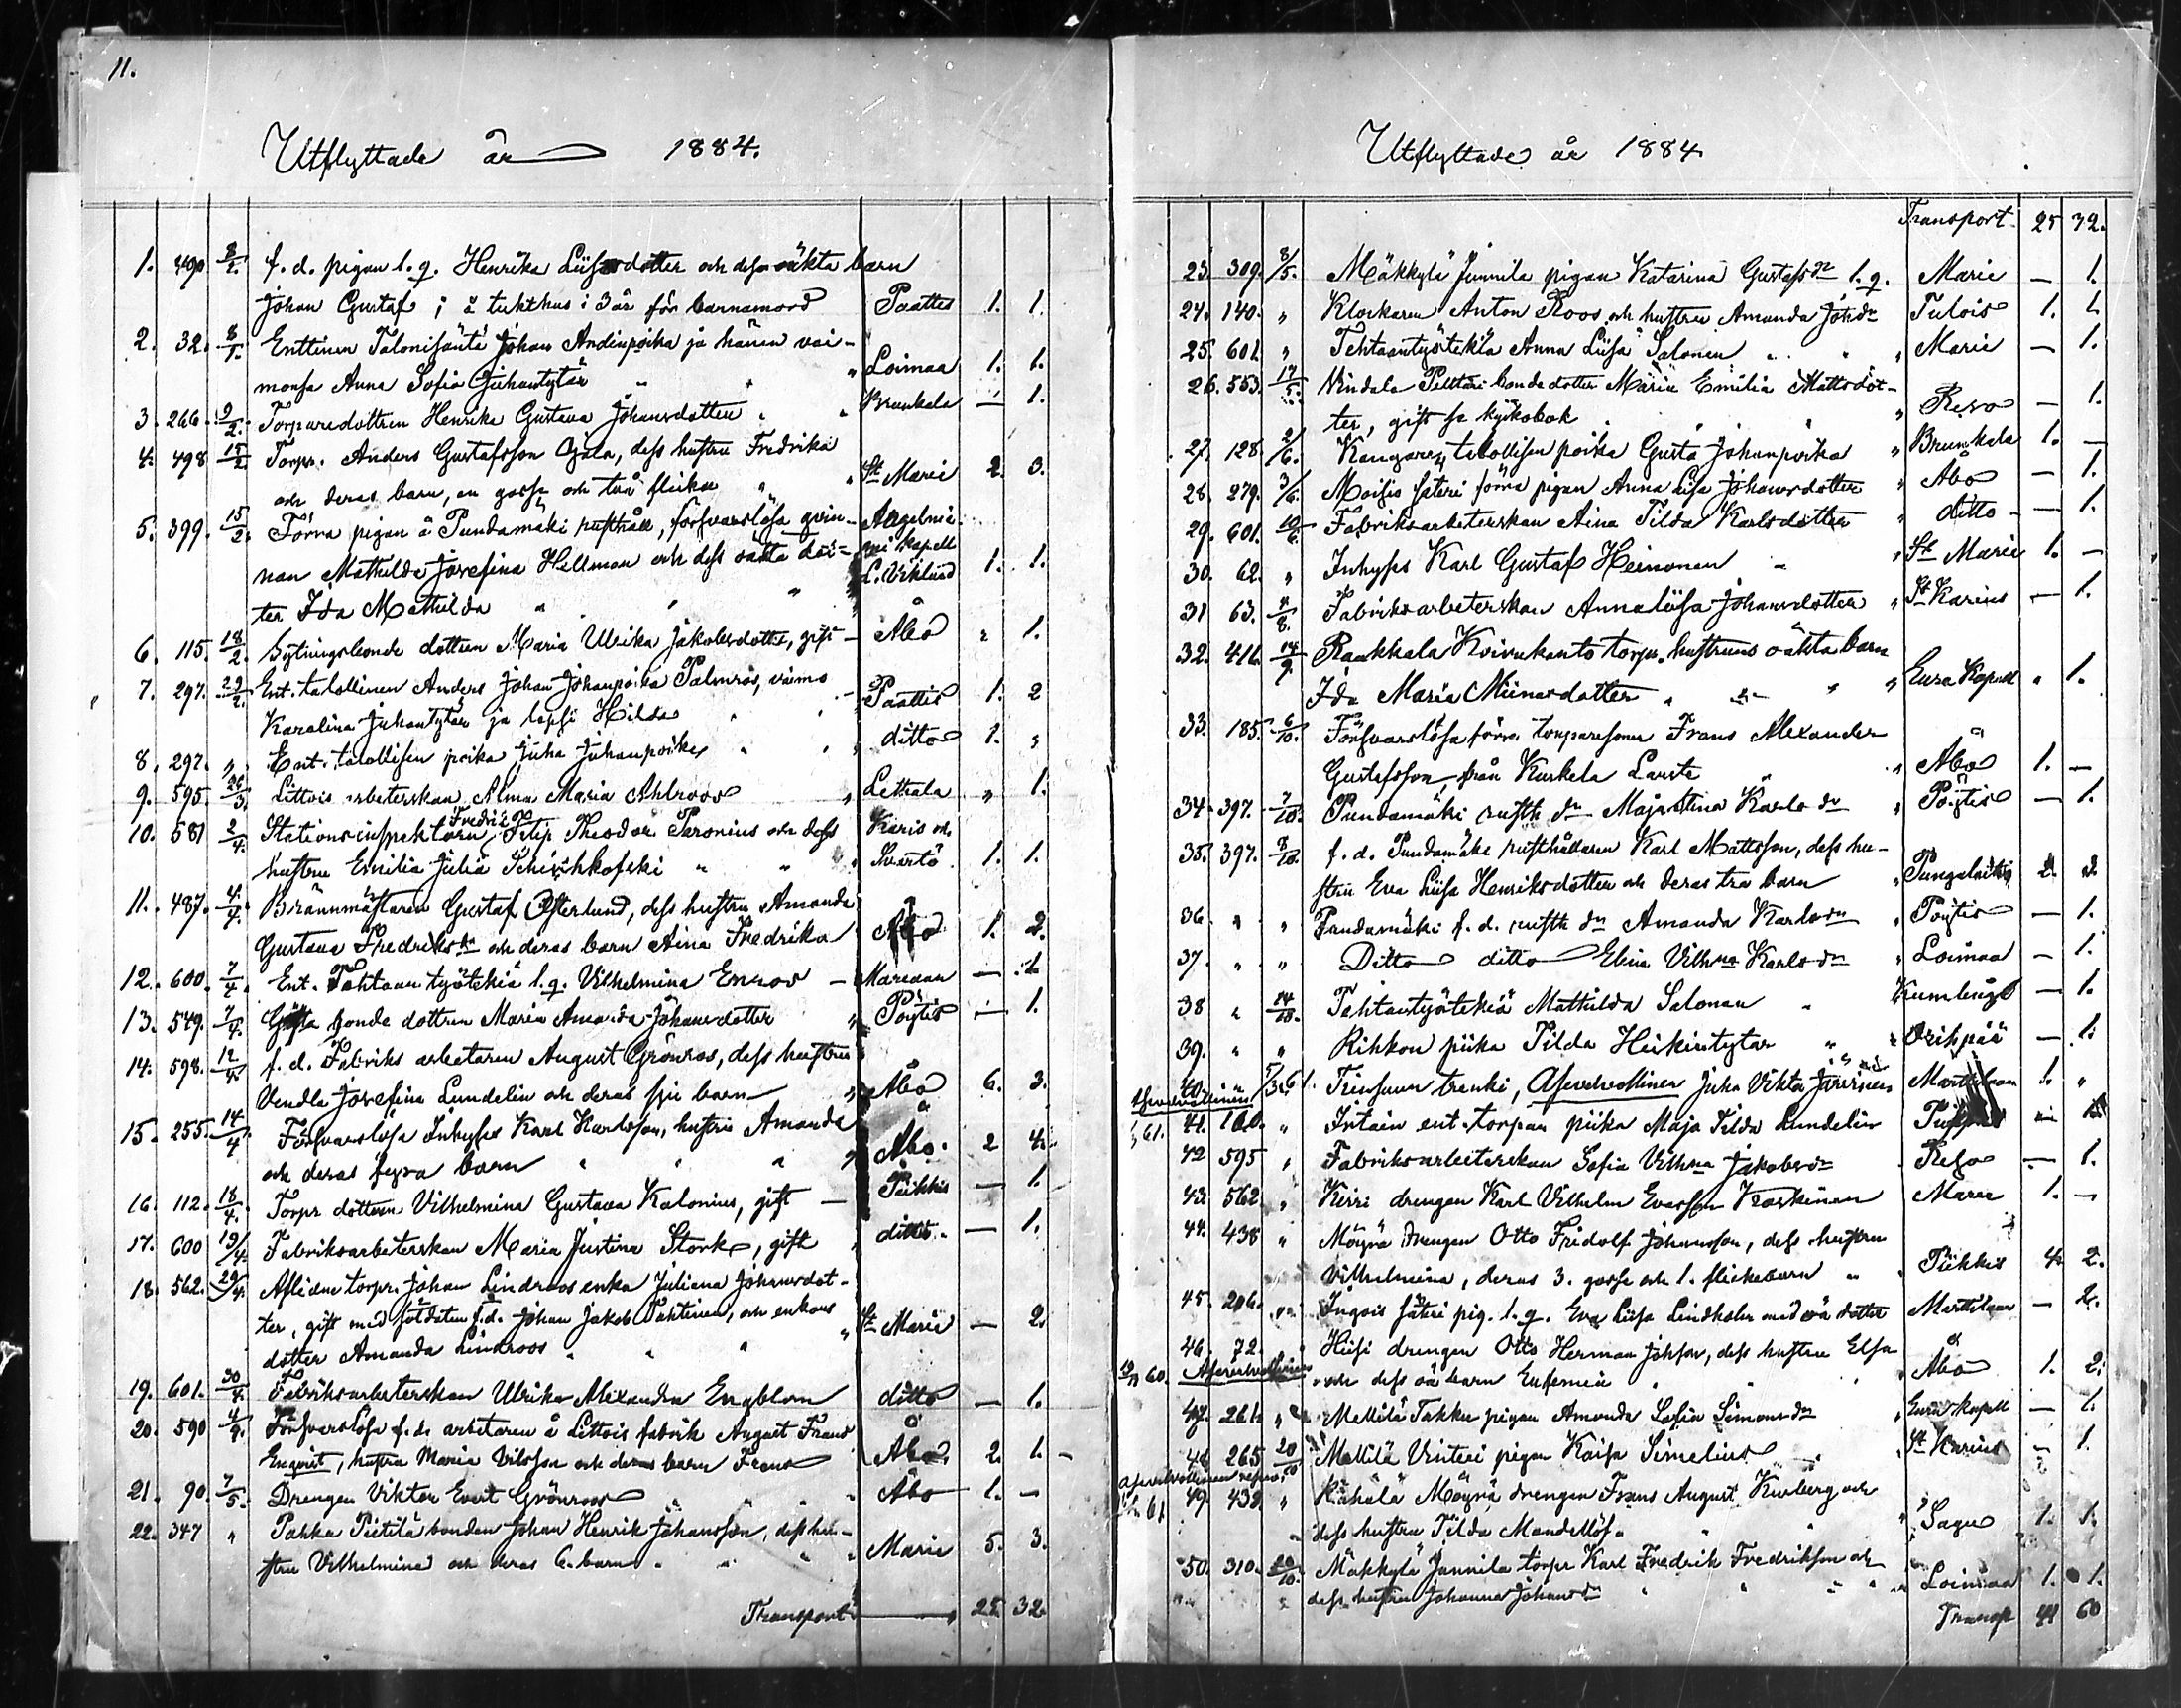 11.
Utflyttade år 1884.
1. 490 8/1. f. d. pigan l. q. Henrika Liisasdotter och dess oäkta barn
Johan Gustaf; i å tukthus i 3 år för barnamord Paattis 1. 1.
2. 32. 8/1. Enttinen Talonisäntä Johan Andinpoika ja hänen vai-
monsa Anna Sofia Juhantytär " " " Loimaa 1. 1.
3. 266. 9/2. Torparedottren Henrika Gustava Johansdotter " " Brunkala — 1.
4. 498 15/2. Torpr. Anders Gustafsson Ojala, dess hustru Fredrika
och deras barn, en gosse och två flickor " " St Marie 2. 3.
5. 399. 15/2. Förra pigan å Pundamäki rusthåll, försvarslösa qvin-
nan Mathilda Josefina Hellman och dess oäkta dot- 1. 1.
ter Ida Mathilda " " "
6. 115. 18/2. Sytningsbonde dottren Maria Ulrika Jakobsdotter, gift — Åbo " 1.
7. 297. 29/2. Ent. talollinen Anders Johan Johanpoika Palmros, vaimo
Karalina Juhantytär ja lapsi Hilda " " Paattis 1. 2
8. 297. " Ent. talollisen poika Juha Juhanpoika " " ditto 1. "
9. 595. 26/3. Littois arbeterskan Alma Maria Ahlroos " Letala " 1.
10. 581 2/4. Stationsinspektoren Fredrik Filip Theodor Paronius och dess Karis och
hustru Emilia Julia " " Svartå 1. 1.
11. 487. 4/4. Brännmästaren Gustaf Österlund, dess hustru Amanda
Gustava Fredriksdr och deras barn Aina Fredrika Åbo 1. 2.
12. 600. 7/4. Ent. Tehtaan työtekiä l. q. Vilhelmina Enroos — Marian — 1.
13. 549. 7/4. bonde dottren Maria Amanda Johansdotter " Pöytis — 1.
14. 598. 12/4. f. d. Fabriks arbetaren August Grönroos, dess hustru
Vendla Josefina Lundelin och deras sju barn " Åbo 6. 3.
15. 255. 14/4. Försvarslösa Inhyses Karl Karlsson, hustru Amanda
och deras fyra barn " " " " Åbo. 2 4.
16. 112. 18/4. Torpr dottren Vilhelmina Gustava Kalonius, gift — Piikkis — 1.
17. 600 19/4. Fabriksarbeterskan Maria Justina Stork, gift " ditto. — 1.
18. 562. 29/4. Aflidne torpr. Johan Lindroos enka Juliana Johansdot-
ter, gift med soldaten f. d. Johan Jakob Tahtinen, och enkans
dotter Amanda Lindroos " " " " St Marie — 2.
19. 601. 30/4. Fabriksarbeterskan Ulrika Alexandra Engblom ditto — 1.
20. 590 4/4. Försvarslösa f. d. arbetaren å Littois fabrik August Frans
Enqvist, hustru Maria Vilsson och deras barn Frans Åbo. 2. 1. —
21. 90. 7/5. Drengen Viktor Evert Grönroos " " " Åbo 1. —
22. 347 " Pahka Pietilä bonden Johan Henrik Johansson, dess hu-
stru Vilhelmina och deras 6. barn " " " Marie 5. 3.
Transport — " 25 32.
Utflyttade år 1884
Transport 25 32.
23. 309. 8/5. Mäkkylä Junnila pigan Katarina Gustafsdr l. q. Marie — 1.
24. 140. " Klockaren Anton Roos och hustru Amanda Johdr Tulois 1. 1.
25. 601. " Tehtaantyötekiä Anna Liisa Salonen " " " Marie — 1.
26. 553. 17/5. Vindala Pelttari bondedotter Maria Emilia Mattsdot-
ter, gift se kyrkobok " " " Reso — 1.
27. 128. 2/6. talollisen poika Gusta Johanpoika " Brunkala 1. —
28. 279. 3/6. Moisis säteri förra pigan Anna Lisa Johansdotter " Åbo — 1.
29. 601. 10/6. Fabriksarbeterskan Aina Tilda Karlsdotter " ditto — 1.
30. 62. " Inhyses Karl Gustaf Heinonen " " St Marie 1. —
31 63. 4/8. Fabriksarbeterskan Annalisa Johansdotter " St Karins — 1.
32. 411. 14/9. Raukkala Koivukanto torpr. hustruns oäkta barn
Ida Maria Miinasdotter " " " " Eura Kapell " 1.
33. 185. 6/10. Försvarslösa förra torparesonen Frans Alexander
Gustafsson, från Kuskela Laurts " " Åbo 1. —
34. 397. 7/10. Pundamäki rusth dr Majastina Karlsdr " Pöytis — 1.
35. 397. 8/10. f. d. Pundamäki rusthållaren Karl Mattsson, dess hu-
stru Eva Liisa Henriksdotter och deras tre barn " Pungalaitio 2. 3.
36. " " Pundamäki f. d. rusth dr Amanda Karlsdr " Pöytis — 1.
37. " " Ditto ditto Elina Vilhna Karlsdr " Loimaa — 1.
38 " 14/10. Tehtaantyötekiä Mathilda Salonen " Kumlinge — 1.
39. " " Rihkon piika Tilda Heikintytar " " Orihpää — 1.
40. trenki, Asevelvollinen Juha Vikta Järvinen Marttilaan 1. "
41. 160. " Intain ent. torpan piika Maja Tilda Lundelin — 1.
61.
42 595 " Fabriksarbeterskan Sofia Vilhna Jakobsdr Reso — 1.
43. 562. " Kirri drengen Karl Vilhelm Evasson Koskinen Marie 1. —
44. 438 " Möyrä drengen Otto Fridolf Johansson, dess hustru
Vilhelmina, deras 3. gosse och 1. flickebarn " Piikkis 4. 2.
45. 206. " Ingois säteri pig. l. q. Eva Liisa Lindholm med oä dotter Marttilaan — 2.
46. 72. " Hiisi drengen Otto Herman Johsson, dess hustru Elsa
Asevelvollinen och dess oä barn Eufemia " " Åbo 1. 2.
47. 261. " Mellilä Takku pigan Amanda Sofia Simonsdr " Eura kapell — 1.
48. 265 20/10 Mellilä Vinteri pigan Kaisa Simelius " St Karins — 1.
Asevelvollinen
49. 438 " Kähälä Möyrä drengen Frans August Kurberg och
dess hustru Tilda Mandellöf " " " Sagu 1. 1.
50. 310. 20/10. Mäkkylä Junnila torpr Karl Fredrik Fredriksson och
dess hustru Johanna Johansdr " " " Loimaa 1. 1.
Transp 41 60